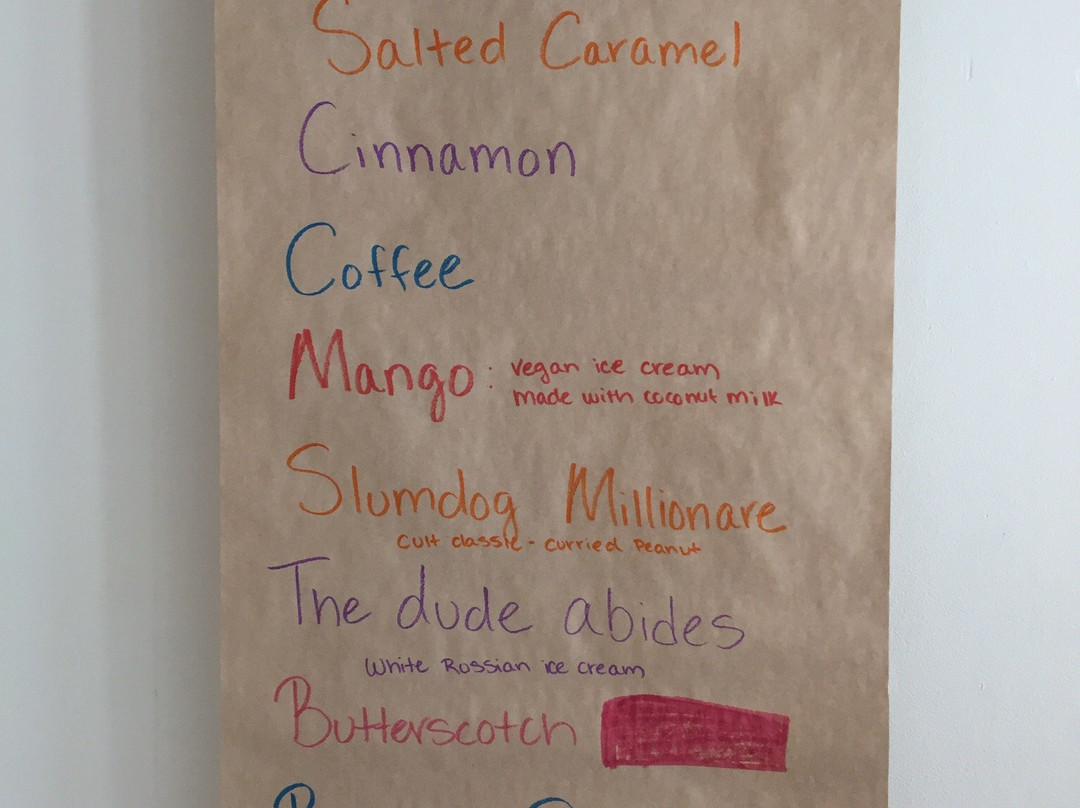 Salted Caramel
Cinnamon
Coffee
Mango: vegan ice cream
made with coconut milk
Slumdog Millionare
Cult classic - curried Peanut
The dude abides
White Rossian ice cream
Butterscotch